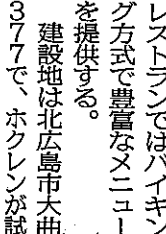 レストランではバイキン
グ方式で豊富なメニュー
を提供する。
　建設地は北広島市大曲
３７７で、ホクレンが試